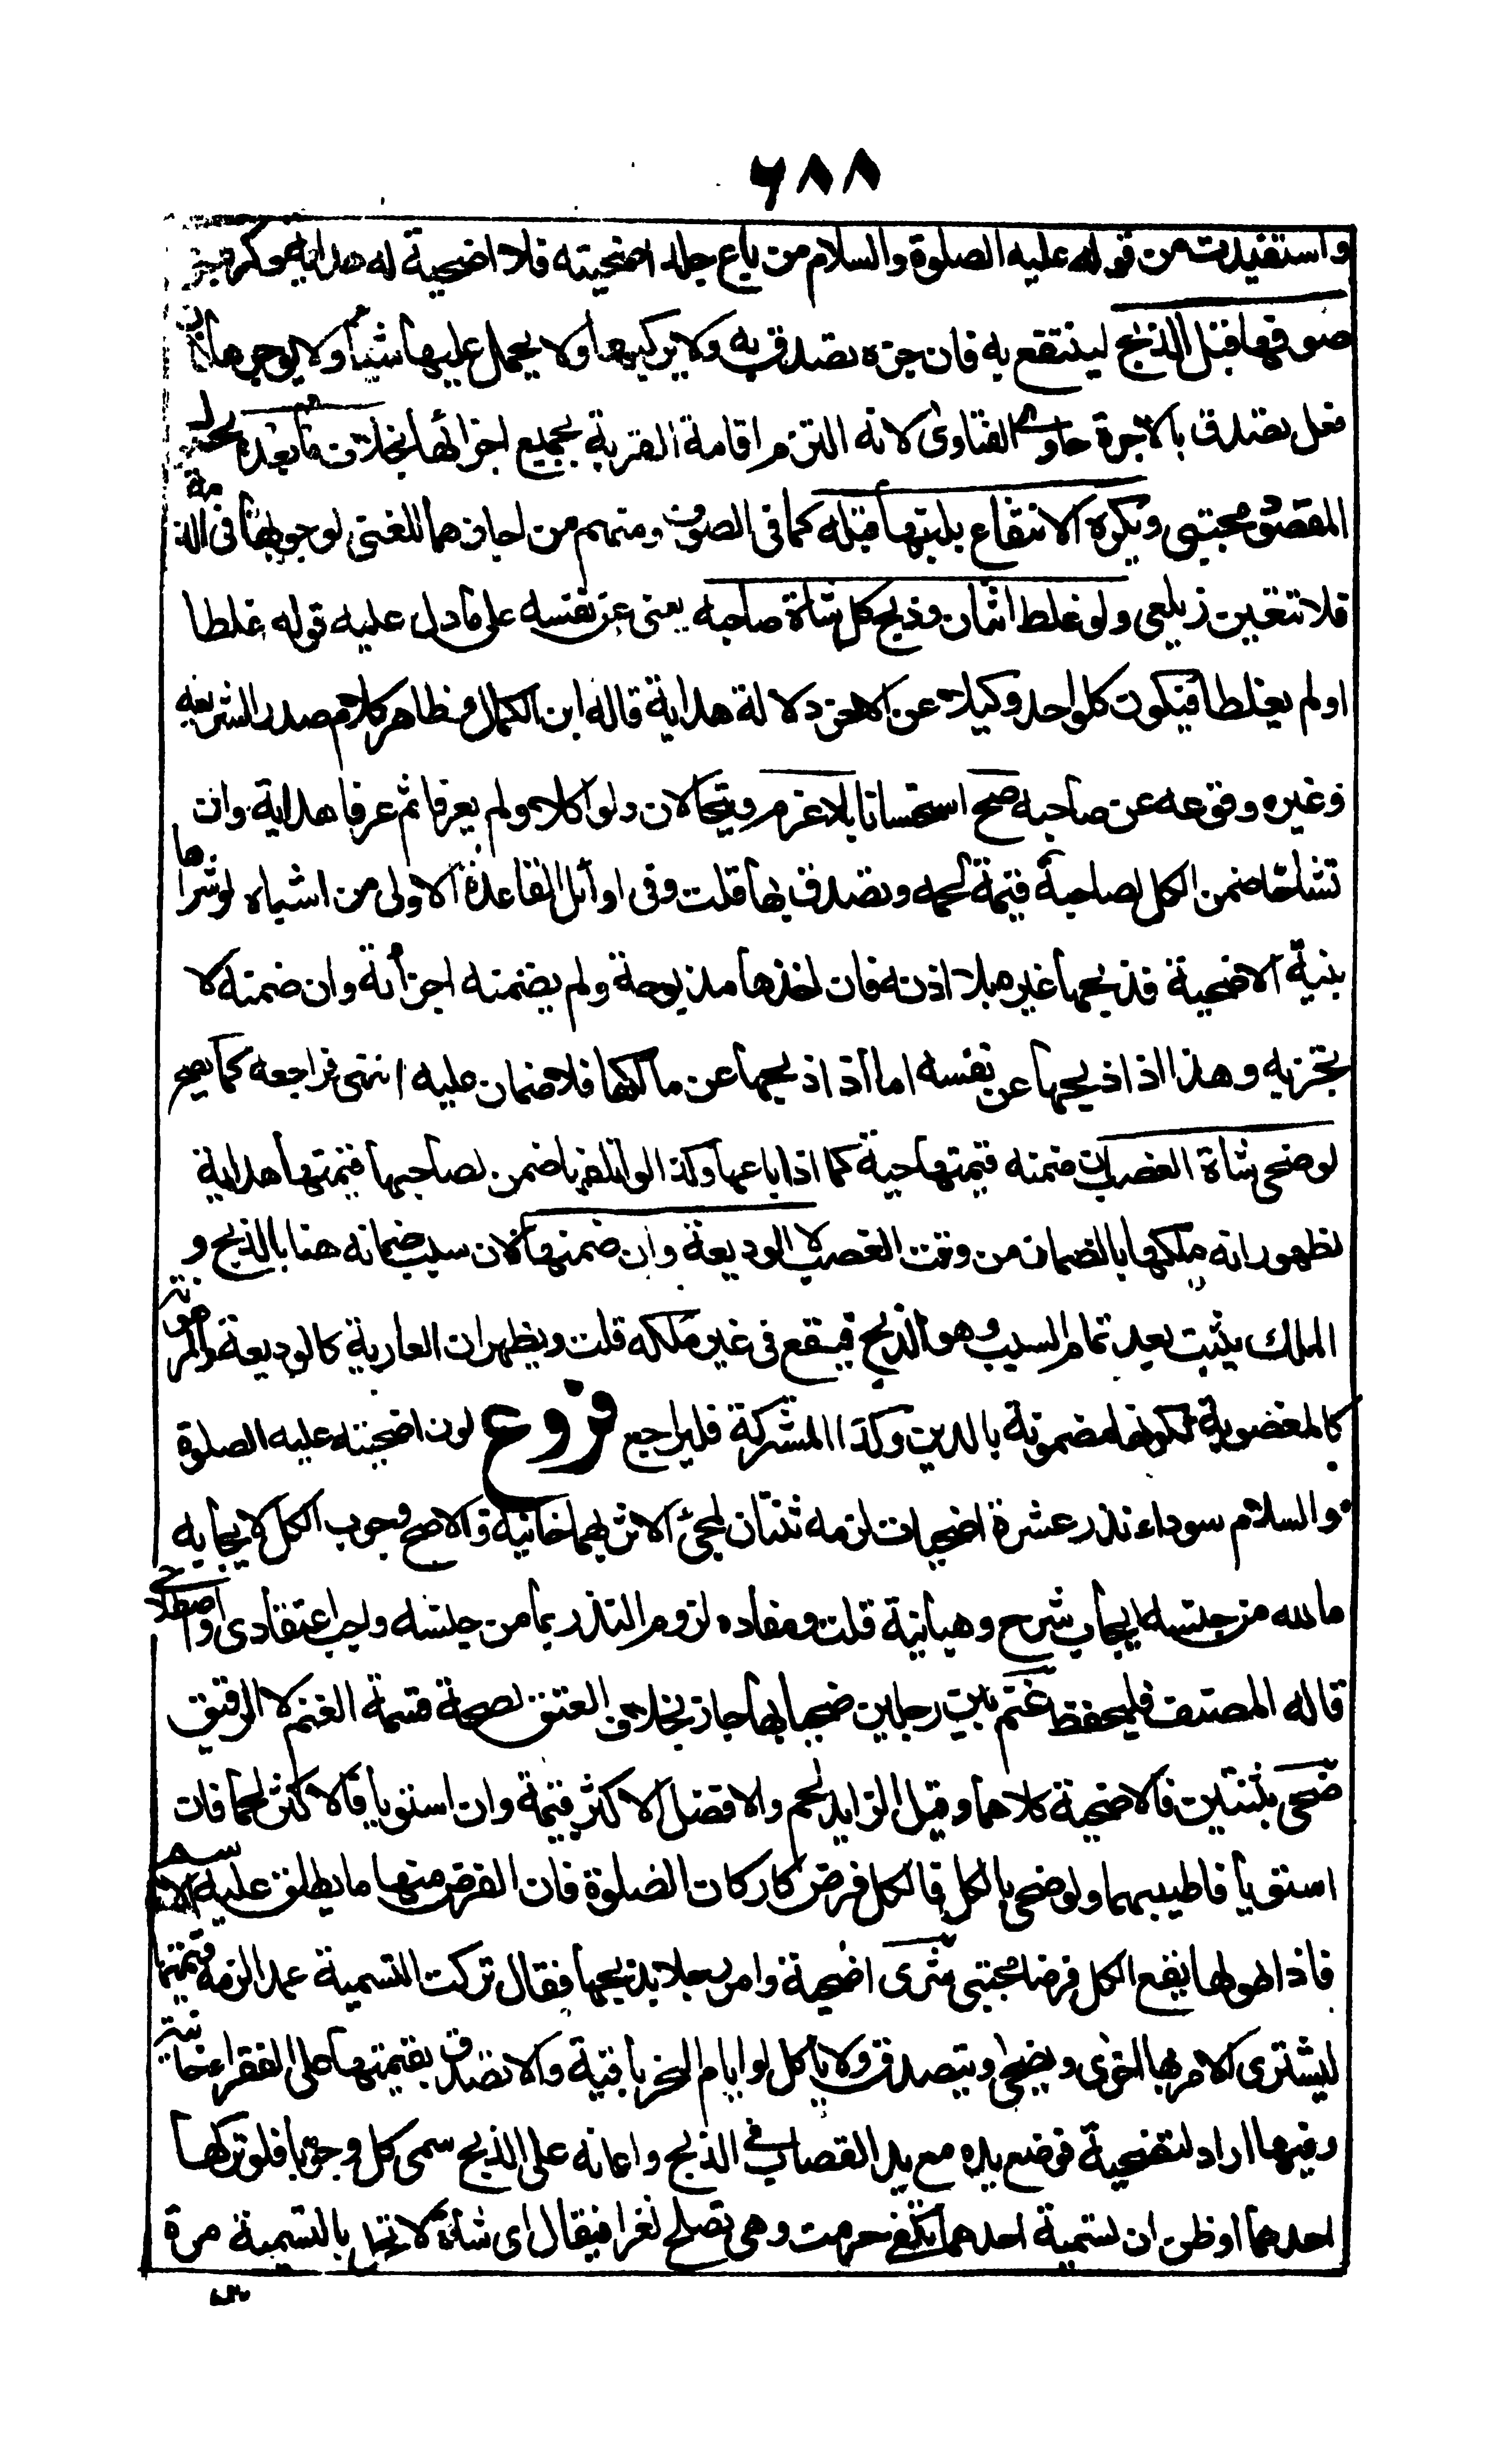 ٦٨٨
واستفيدت من قوله عليه الصلوة والسلام من باع جلد اضحيته فلا اضحية له هداية وكره جز
صوفها قبل الذبح لينتفع به فان جزه تصدق به ولا يركبها ولا يحمل عليها شيئا ولا يوجرها فان
فعل تصدق بالاجرة حاوى الفتاوى لانه التزم اقامة القربة بجميع اجزائها بخلاف ما بعده لحصول
المقصود مجتبى ويكره الانتفاع بلبنها قبله كما فى الصوف ومنهم من اجازهما للغنى لوجوبها فى الذمة
فلا تتعين زيلعى ولو غلط اثنان وذبح كل شاة صاحبه يعنى عن نفسه على ما دل عليه قوله غلطا
او لم يغلطا فيكون كل واحد وكيلا عن الاخر دلالة هداية قاله ابن الكمال وظاهر كلام صدر الشريعة
وغيره وقوعه عن صاحبه صح استحسانا بلا غرم ويتحالان ولو اكلا ولم يعرفا ثم عرفا هداية وان
تشاحا ضمن الكل لصاحبه قيمة لحمه وتصدق بها قلت وفى اوائل القاعدة الاولى من اشباه لو شراها
بنية الاضحية فذبحها غيره بلا اذنه فان اخذها مذبوحة ولم يضمنه اجزأته وان ضمنه لا
تجزيه وهذا اذا ذبحها عن نفسه اما اذا ذبحها عن مالكها فلا ضمان عليه انتهى فراجعه كما يصح
لو ضحى شاة الغصب ان ضمنه قيمتها حية كما اذا باعها وكذا لو اتلفها ضمن لصاحبها قيمتها هداية
لظهور انه ملكها بالضمان من وقت الغصب لا الوديعة وان ضمنها لان سبب ضمانه هنا بالذبح و
الملك يثبت بعد تمام السبب وهو الذبح فيقع فى غير ملكه قلت ويظهر ان العارية كالوديعة والمرهونة
كالمغصوبة لكونها مضمونة بالدين وكذا المشتركة فليراجع فروع لون اضحيته عليه الصلوة
والسلام سوداء نذر عشرة اضحيات لزمه ثنتان لمجئ الاثر بهما خانية والاصح وجوب الكل لايجابه
ما لله من جنسه ايجاب شرح وهبانية قلت ومفاده لزوم النذر بما من جنسه واجب اعتقادى او اصطلاحى
قاله المصنف فليحفظ غنم بين رجلين ضحيا بها جاز بخلاف العتق لصحة قسمة الغنم لا الرقيق
ضحى بثنتين فالاضحية كلاهما وقيل الزايد لحم والافضل الاكثر قيمة وان استويا فالاكثر لحما فان
استويا فاطيبهما ولو ضحى بالكل فالكل فرض كاركان الصلوة فان الفرض منها ما يطلق عليه الاسم
فاذا طولها يقع الكل فرضا مجتبى شرى اضحية وامر رجلا بذبحها فقال تركت التسمية عمدا لزمه قيمتها
ليشترى الامر بها اخرى ويضحى ويتصدق ولا ياكل لو ايام النحر باقية والا تصدق بقيمتها على الفقراء خانية
وفيها اراد التضحية فوضع يده مع يد القصاب فى الذبح واعانه على الذبح سمى كل وجوبا فلو تركها
احدهما او ظن ان تسمية احدهما تكفى حرمت وهى تصلح لغزا فيقال اى شاة لا تحل بالتسمية مرة